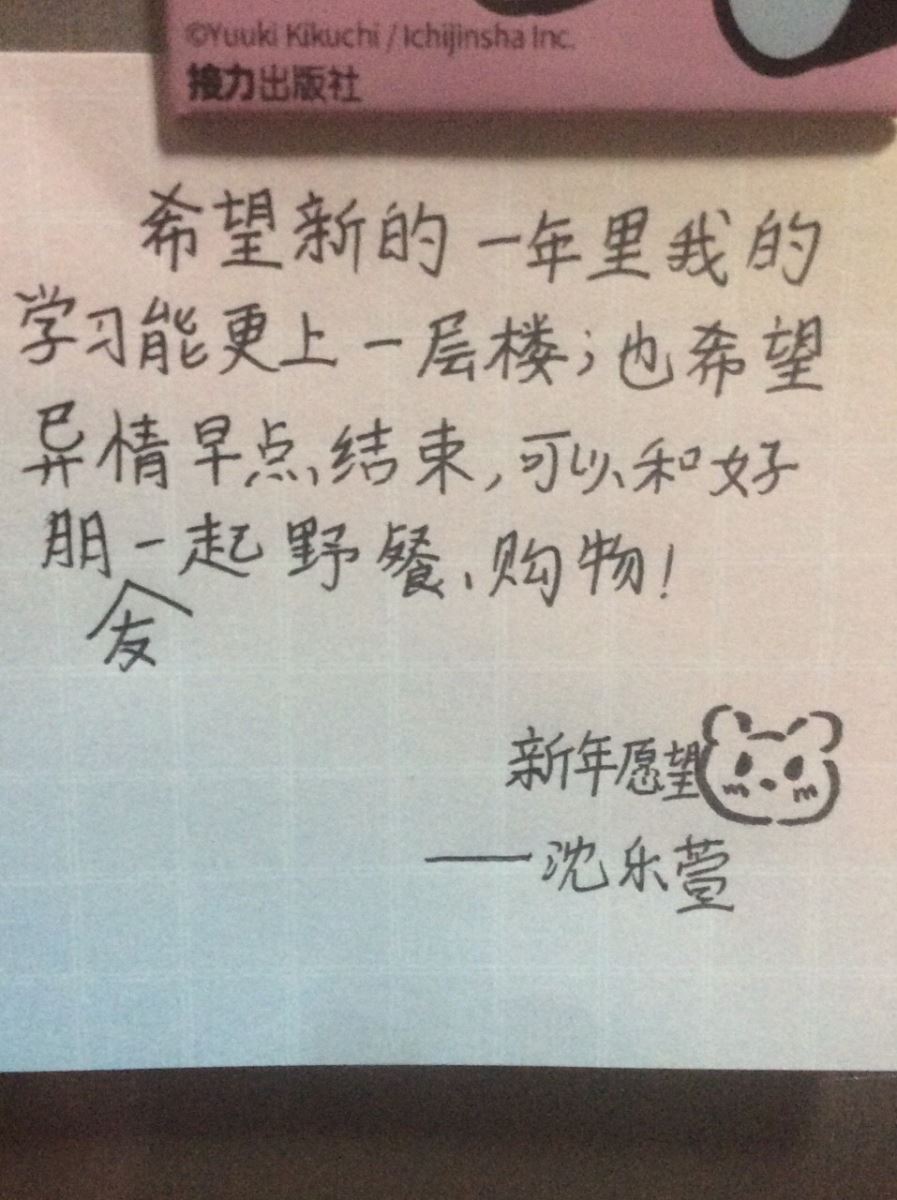 ©Yuuki Kikuchi / Ichijinsha Inc.
接力出版社
希望新的一年里我的
学习能更上一层楼；也希望
异情早点结束，可以和好
朋友一起野餐、购物！
新年愿望
——沈乐萱